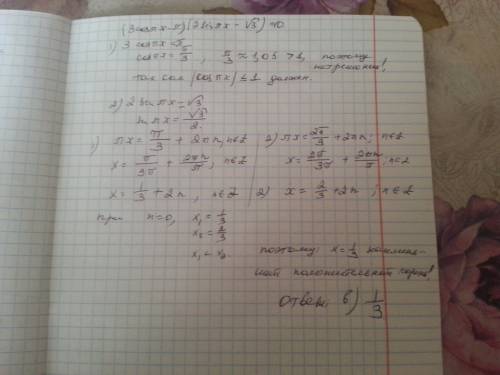 (3cosπx-π)(2sinπx-√3)=0
1) 3 cosπx=π
cosπx=π/3, π/3≈1,05>1, поэтому
нет решения!
так как |cosπx|≤1 должен.
2) 2 sinπx=√3
sinπx=√3/2.
1) πx=π/3+2πn; n∈Z
x=π/3π+2πn/π; n∈Z
x=1/3+2n, n∈Z
2) πx=2π/3+2πn; n∈Z
x=2π/3π+2πn/π; n∈Z
2) x=2/3+2n; n∈Z
при n=0, x₁=1/3
x₂=2/3
x₁<x₂
поэтому: x=1/3 наимень-
ший положительный корень!
Ответ: в) 1/3